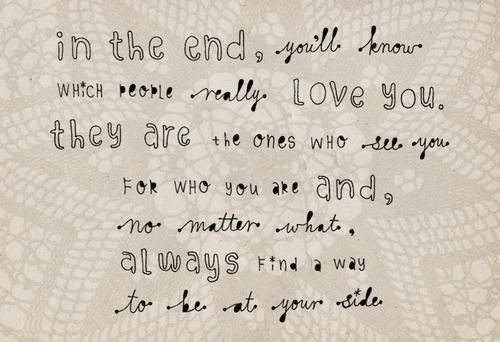 in the end, you'll know
WHiCH PEOPLE really LOVE YOU.
they are the ones WHO see you
FOR WHO YOU ARE and,
no matter what,
always Find a way
to be at your side